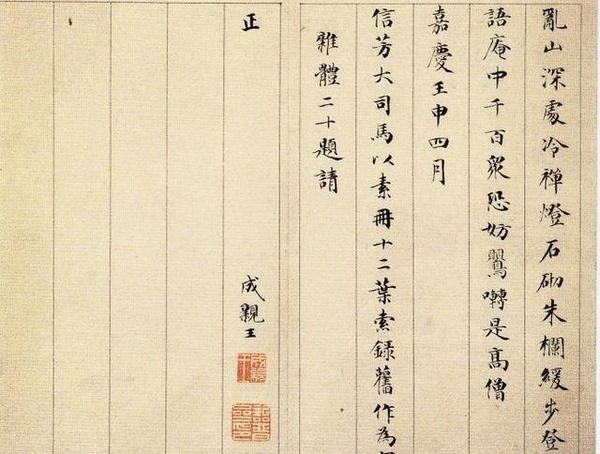 亂山深處冷禪燈石砌朱欄緩步登
語庵中千百衆恐妨鸎囀是髙僧
嘉慶壬申四月
信芳大司馬以素冊十二葉索録舊作為
雜體二十題請
正
成親王